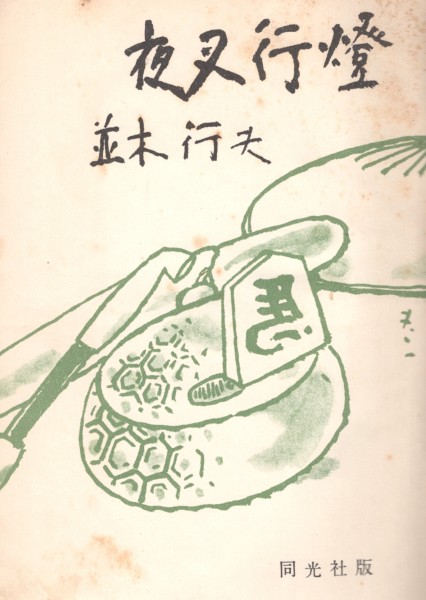 夜叉行燈
並木行夫
同光社版